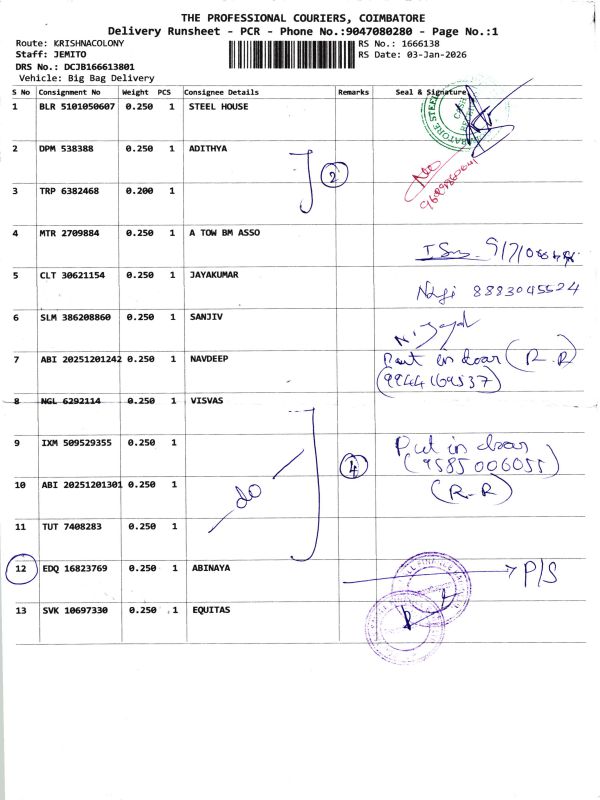 THE PROFESSIONAL COURIERS, COIMBATORE
Delivery Runsheet - PCR - Phone No.:9047080280 - Page No.:1
Route: KRISHNACOLONY
RS No.: 1666138
Staff: JEMITO
RS Date: 03-Jan-2026
DRS No.: DCJB166613801
Vehicle: Big Bag Delivery
S No Consignment No Weight PCS Consignee Details Remarks Seal & Signature
1 BLR 5101050607 0.250 1 STEEL HOUSE
2 DPM 538388 0.250 1 ADITHYA
2
3 TRP 6382468 0.200 1
4 MTR 2709884 0.250 1 A TOW BM ASSO
5 CLT 30621154 0.250 1 JAYAKUMAR
8883045524
6 SLM 386208860 0.250 1 SANJIV
7 ABI 20251201242 0.250 1 NAVDEEP
Put in door (R.R)
(9944169537)
8 NGL 6292114 0.250 1 VISVAS
9 IXM 509529355 0.250 1
Put in door
(9585006055)
4
10 ABI 20251201301 0.250 1
(R-R)
do
11 TUT 7408283 0.250 1
12 EDQ 16823769 0.250 1 ABINAYA
P/S
13 SVK 10697330 0.250 1 EQUITAS